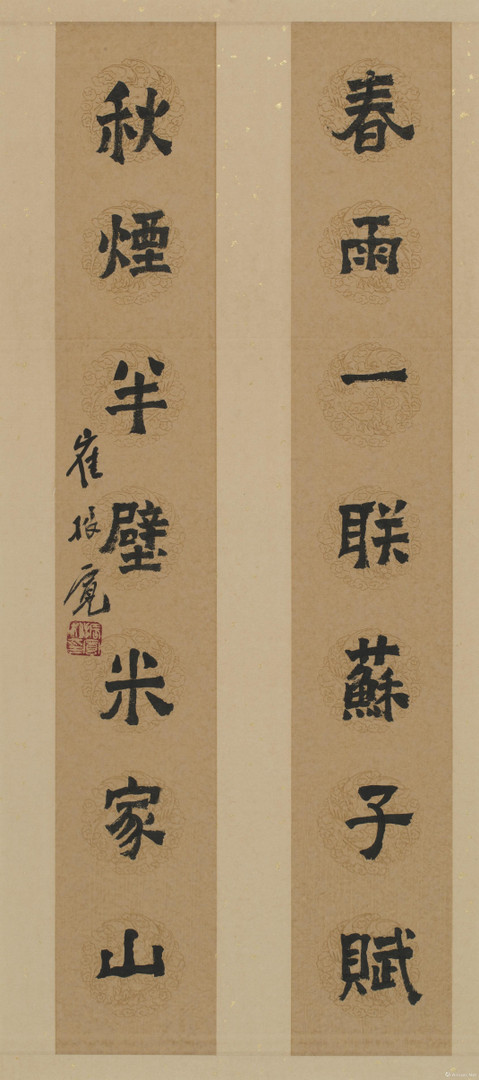 春雨一联蘇子賦
秋煙半壁米家山
崔振寬